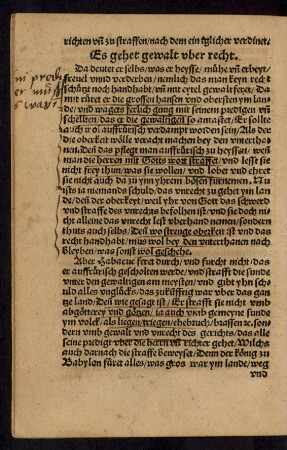 richten vñ zu straffen/nach dem ein yglicher verdinet.
Es gehet gewalt vber recht.
Da deutet er selbs/was er heysse/ mühe vñ erbeyt/
freuel vnnd verderben/nemlich das man keyn recht
schützt noch handhabt/vñ mit eytel gewalt feret/Da
mit rüret er die grossen hansen vnd obersten ym lan
de/vnd wagets ferlich gnug mit seinem predigen vñ
schellten/das er die gewaltigen so antastet/Er sollte
auch wol auffrürisch verdampt worden sein/Als der
die oberkeit wölle veracht machen bey den vnterthа-
nen. Denn das pflegt man auffrürisch zu heyssen/wen
man die herren mit Gotts wort straffet/vnd lesst sie
nicht frey thun/was sie wollen/vnd lobet vnd ehret
sie nicht auch da zu ynn yhrem bösen fürnemen. Nu
ists ia niemands schuld/das vnrecht zu gehet ym lan
de/denn der oberkeyt/weil yhr von Gott das schwerd
vnd straffe des vnrechts befolhen ist/vnd sie doch ni-
cht alleine das vnrecht lest vberhand nemen/sondern
thuts auch selbs/Denn wo strenge oberkeit ist vnd das
recht handhabt/mus wol bey den vnterthanen nach
bleyben/was sonst wol geschehe.
Aber Habacuc feret durch/vnd furcht nicht/das
er auffrürisch gescholten werde/vnd strafft die sunde
vnter den gewaltigen am meysten/vnd gibt yhn sch
uld alles vnglücks/das zukünfftig war vber das gan
tze land/Denn wie gesagt ist/Er strafft sie nicht vmb
abgötterey vnd götzen/ia auch vmb gemeyne sunde
ym volck/als liegen/triegen/ehebruch/hassen rc. son-
dern vmb gewalt vnd vnrecht des gerichts/das alle
seine predigt vber die herrn vñ richter gehet/Wilchs
auch darnach die straffe beweyset/Denn der könig zu
Babylon füret alles/was gros war ym lande/weg
vnd